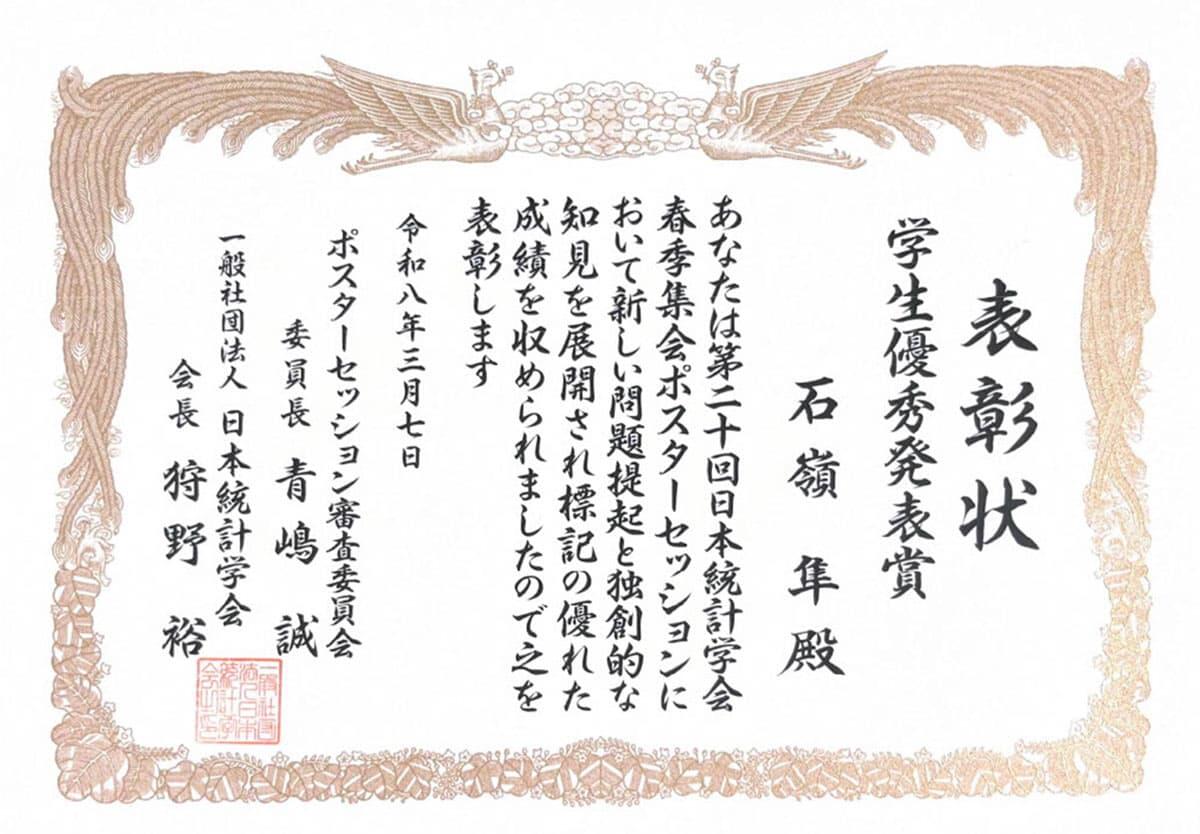 表彰状
学生優秀発表賞
石嶺 隼 殿
あなたは第二十回日本統計学会
春季集会ポスターセッションに
おいて新しい問題提起と独創的な
知見を展開され標記の優れた
成績を収められましたので之を
表彰します
令和八年三月七日
ポスターセッション審査委員会
委員長 青嶋 誠
一般社団法人 日本統計学会
会長 狩野 裕